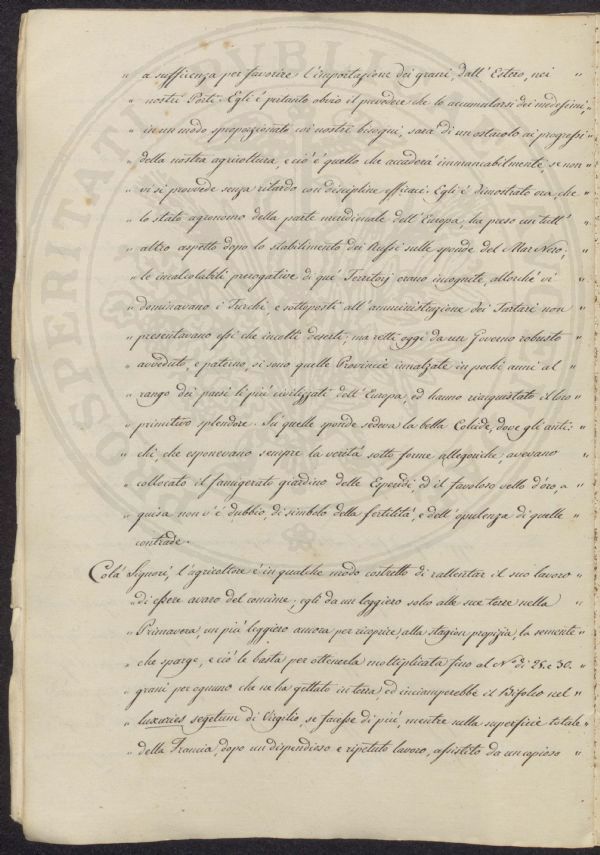 " a sufficienza per favorire l'importazione dei grani, dall'Estero, nei "
" nostri Porti. Egli é pertanto obvio il prevedere che lo accumularsi dei medesimi, "
" in un modo sproporzionato coi nostri bisogni, sara di un ostacolo ai progressi "
" della nostra agricoltura, e ció é quello che accaderá immancabilmente, se non "
" vi si provvede senza ritardo con discipline efficaci. Egli é dimostrato ora, che "
" lo stato agronomo della parte meridionale dell'Europa, ha preso un tutt' "
" altro aspetto dopo lo stabilimento dei Russi sulle sponde del Mar Nero, "
" le incalcolabili prerogative di qué Territorj erano incognite, allorché vi "
" dominavano i Turchi, e sottoposti all'amministrazione dei Tartari non "
" presentavano essi che incolti deserti; ma retti oggi da un Governo robusto "
" avveduto, e paterno, si sono quelle Provincie innalzate in pochi anni al "
" rango dei paesi li piú civilizzati dell'Europa, ed hanno riacquistato il loro "
" primitivo splendore. Sú quelle sponde sedeva la bella Colchide, dove gli anti= "
" chi che esponevano sempre la veritá sotto forme allegoriche, avevano "
" collocato il famigerato giardino delle Esperidi, ed il favoloso vello d'oro, a "
" guisa non v'é dubbio, di simbolo della fertilitá, e dell'opulenza di quelle "
" contrade.
Colá Signori, l'agricoltore é in qualche modo costretto di rallentar il suo lavoro "
" di essere avaro del concime; egli da un leggiero solco alle sue terre nella "
" Primavera, un piú leggiero ancora per ricoprire, alla stagion propizia, la semente "
" che sparge, e ció le basta per ottenerla moltiplicata fino al N.° di 25. e 30. "
" grani per ognuno che ne ha gettato in terra, ed inciamperebbe il Bifolco nel "
" luxuries segetum di Virgilio, se facesse di piú, mentre sulla superficie totale "
" della Francia, dopo un dispendioso e ripetuto lavoro, assistito da un copioso "
PROSPERITATI PVBLICAE